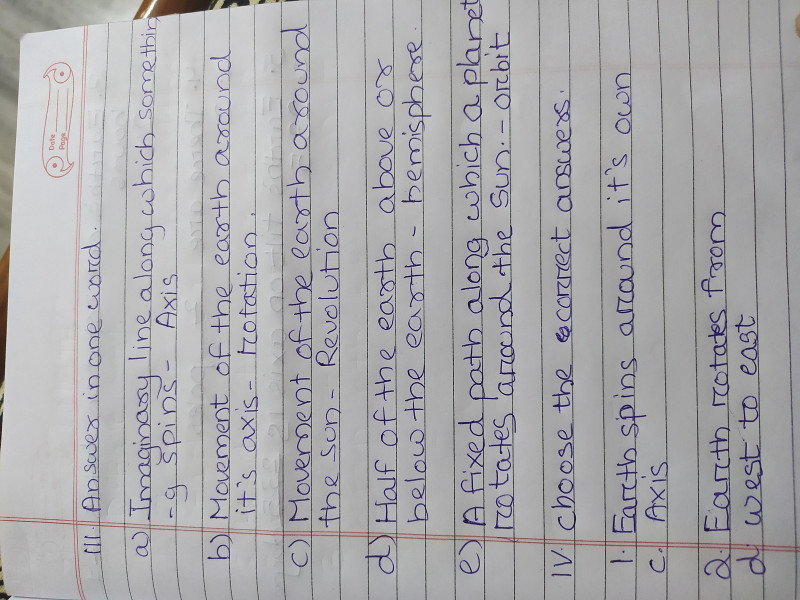 Date
Page
III. Answer in one word.
a) Imaginary line along which somethin
-g spins - Axis
b) Movement of the earth around
it's axis - rotation.
c) Movement of the earth around
the sun - Revolution
d) Half of the earth above or
below the earth - hemisphere.
e) A fixed path along which a planet
rotates around the sun. - orbit
IV. choose the correct answers.
1. Earth spins around it's own
c. Axis
2. Earth rotates from
d. west to east